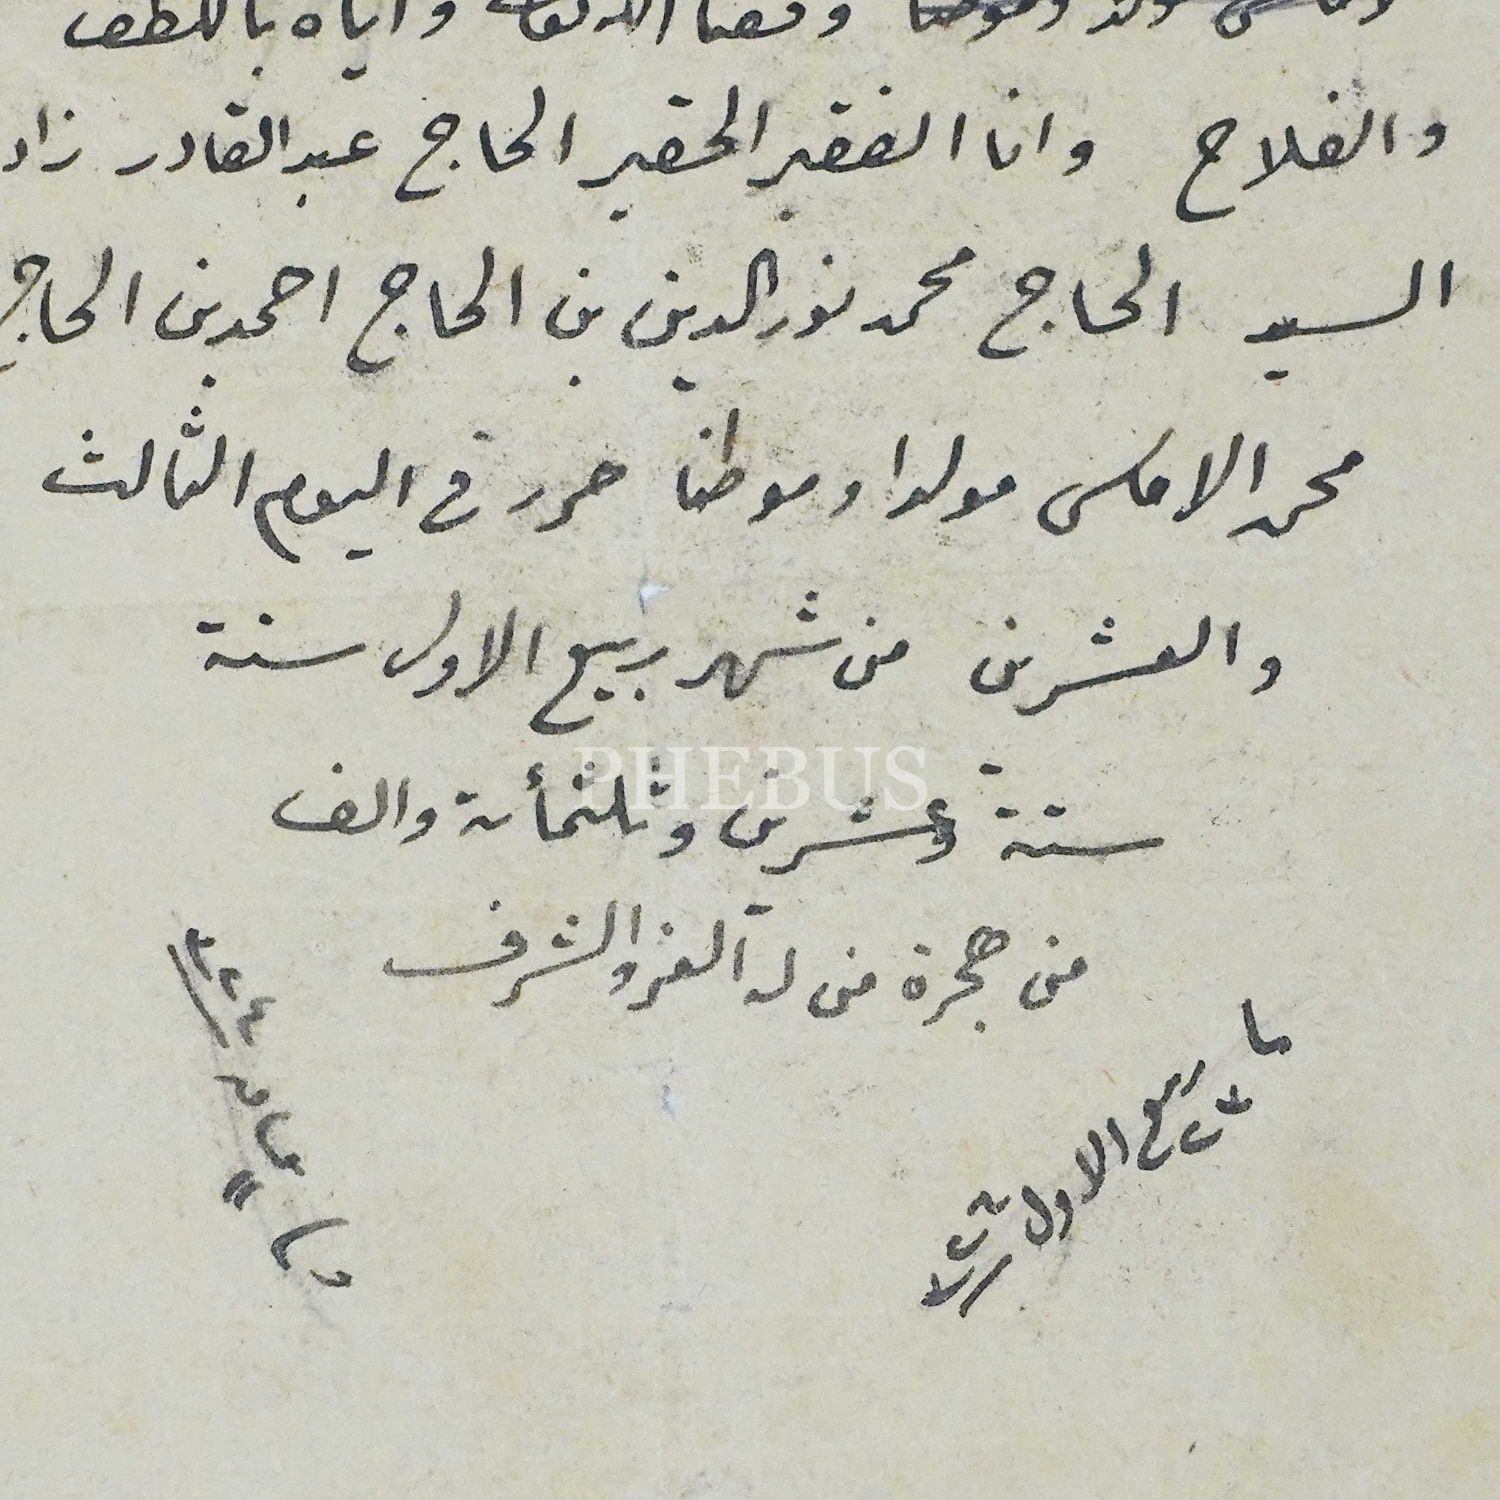 وفقنا الله تعالى واياه باللطف
والفلاح وانا الفقير الحقير الحاج عبد القادر زاد
السيد الحاج محمد نور الدين بن الحاج احمد بن الحاج
محمد مولدا وموطنا حرر في اليوم الثالث
والعشرين من شهر ربيع الاول سنة
ستة وعشرين وثلثمأية والف
من هجرة من له العز والشرف
ربيع الاول
٣٢٤
PHEBUS